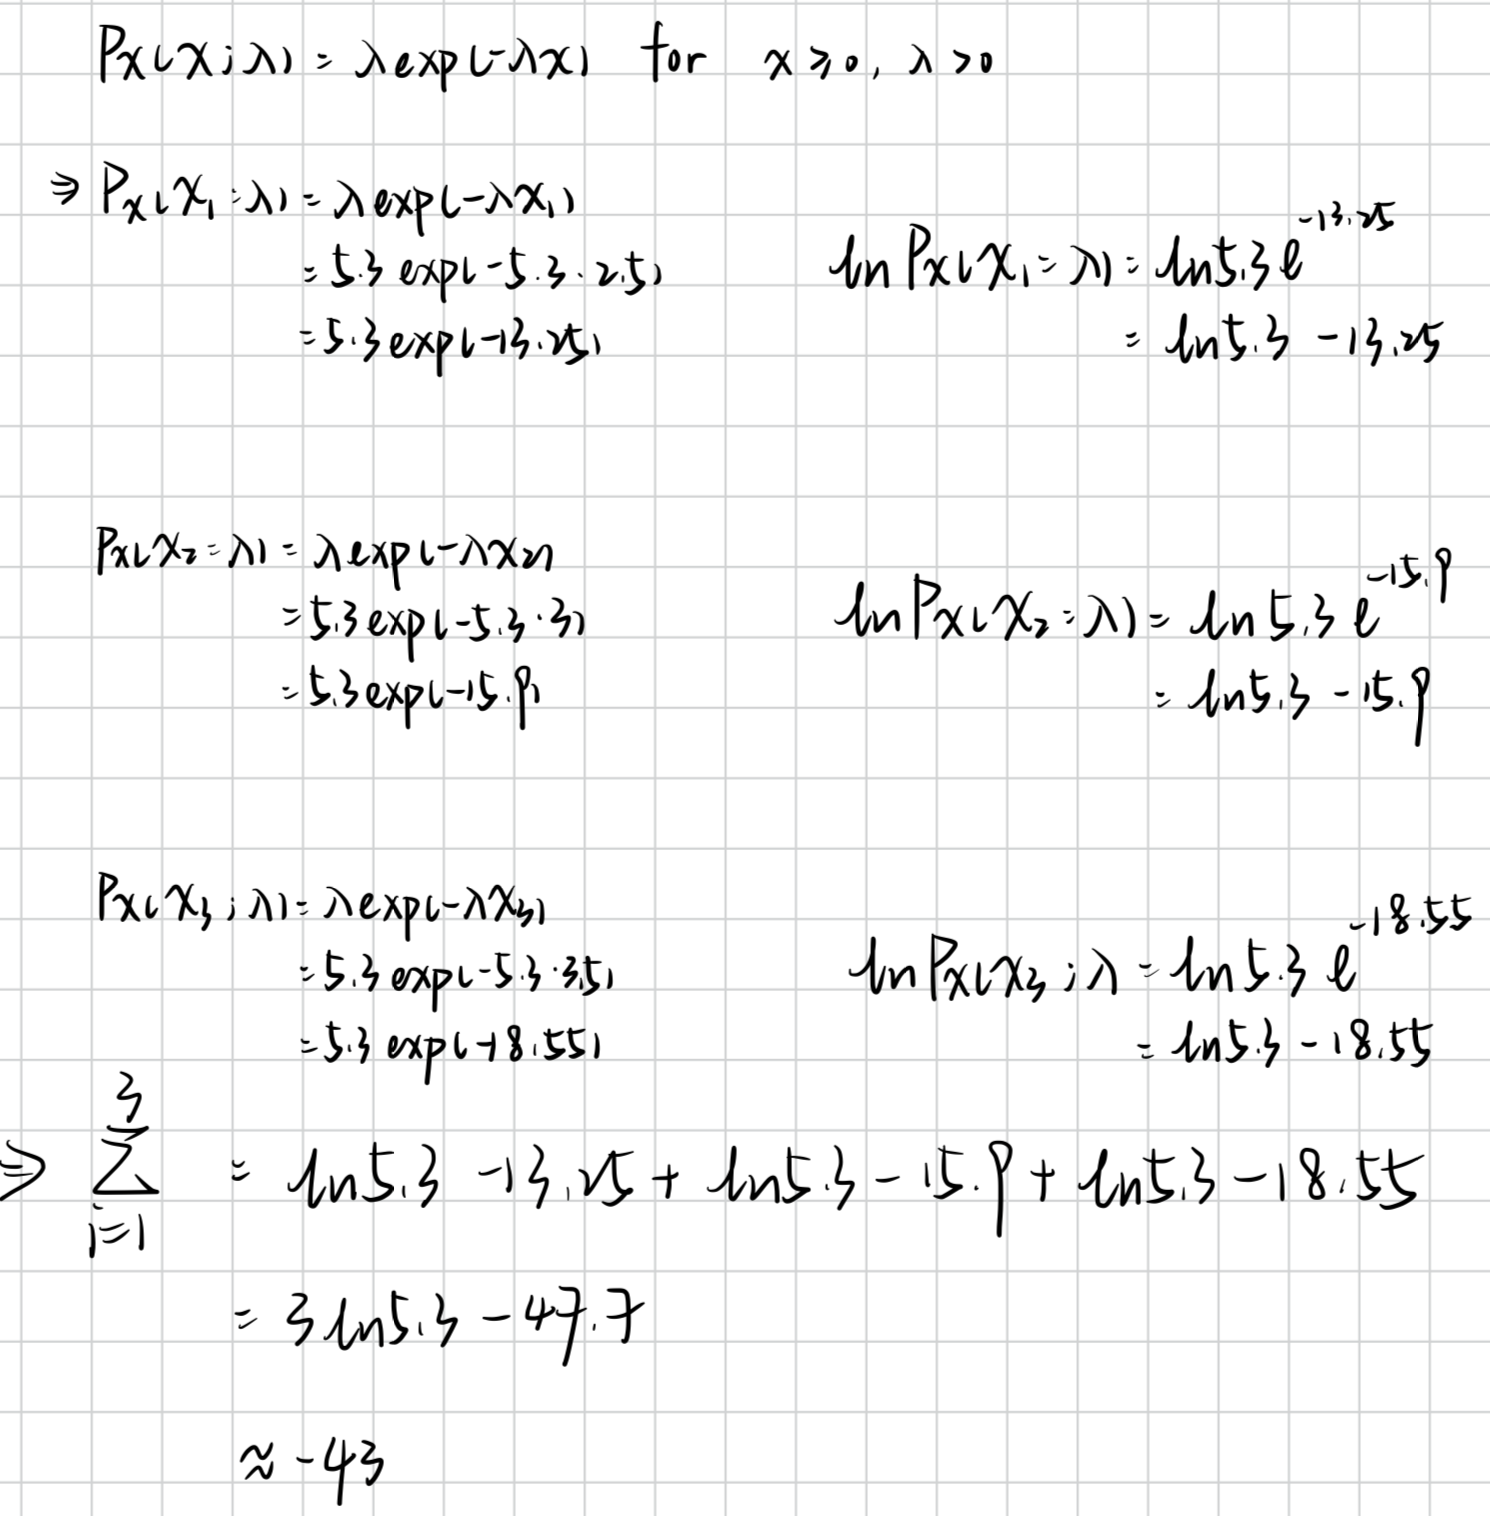 Px(x;λ) = λexp(-λx) for x⩾0, λ>0
⇒ Px(x₁:λ) = λexp(-λx₁)
= 5.3 exp(-5.3·2.5)
= 5.3 exp(-13.25)
ln Px(x₁=λ) = ln5.3e^-13.25
= ln5.3 -13.25
Px(x₂=λ) = λexp(-λx₂)
= 5.3 exp(-5.3·3)
= 5.3 exp(-15.9)
ln Px(x₂:λ) = ln5.3 e^-15.9
= ln5.3 -15.9
Px(x₃;λ) = λexp(-λx₃)
= 5.3 exp(-5.3·3.5)
= 5.3 exp(-18.55)
ln Px(x₃;λ = ln5.3 e^-18.55
= ln5.3 -18.55
⇒ ∑ i=1 3 = ln5.3 -13.25 + ln5.3 -15.9 + ln5.3 -18.55
= 3ln5.3 -47.7
≈ -43